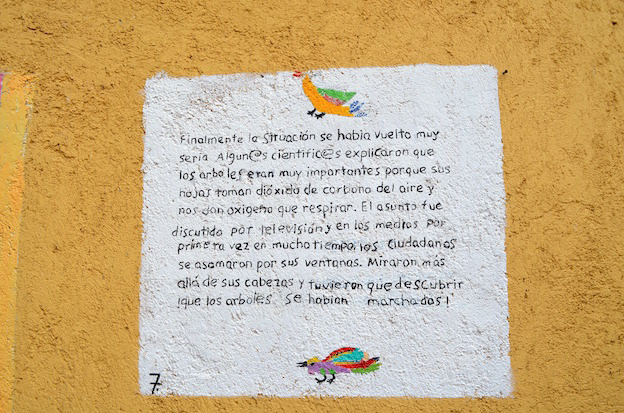 Finalmente la situación se habia vuelto muy
seria Algun@s cientific@s explicaron que
los arboles eran muy importantes porque sus
hojas toman dióxido de carbono del aire y
nos dan oxigeno que respirar. El asunto fue
discutido por televisión y en los medios Por
primera vez en mucho tiempo, los ciudadanos
se asomaron por sus ventanas. Miraron más
allá de sus cabezas y tuvieron que descubrir
¡que los arboles se habian marchados!
7.